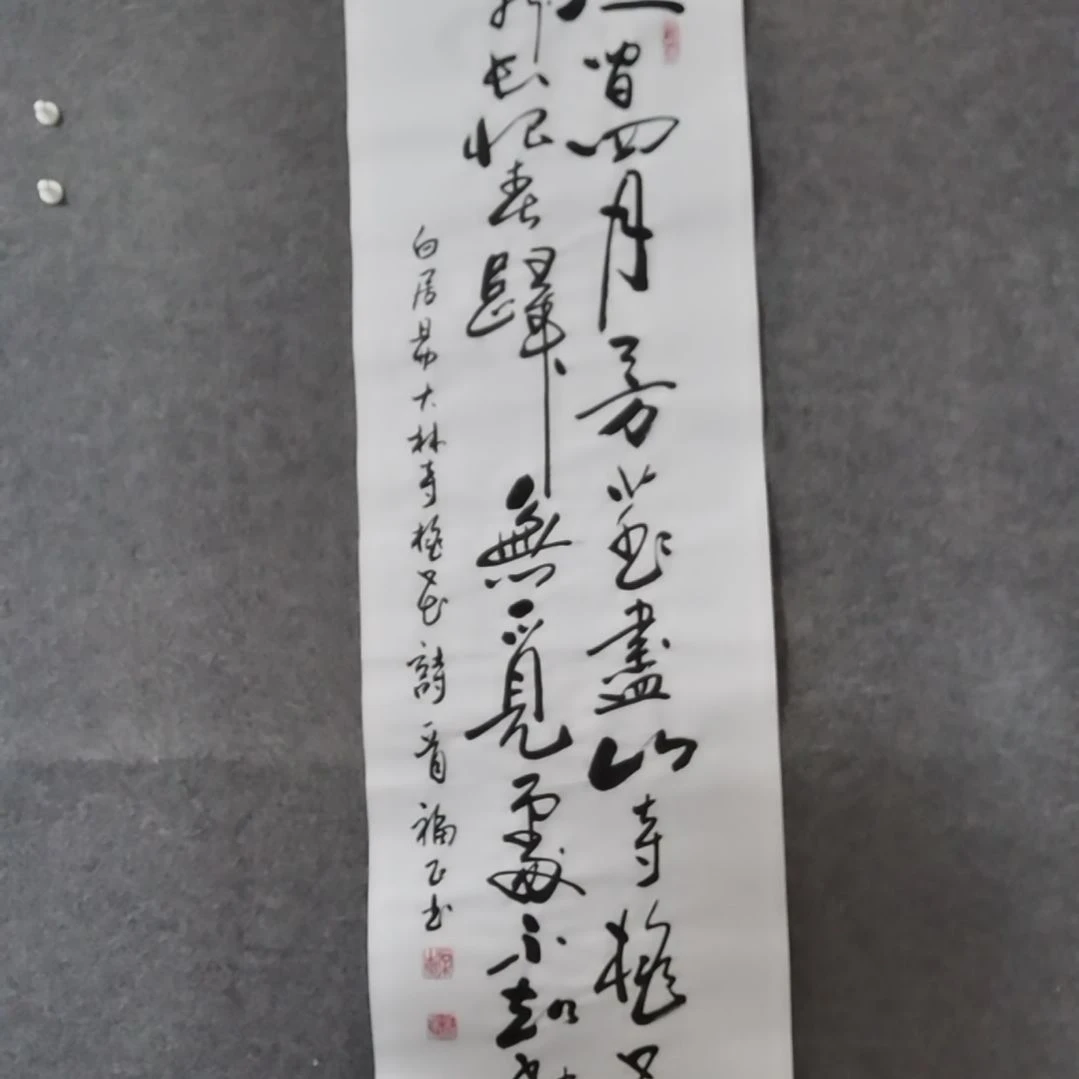 人間四月芳菲盡山寺桃花
開長恨春歸無覓處不知轉
白居易大林寺桃花詩 晋 福正书